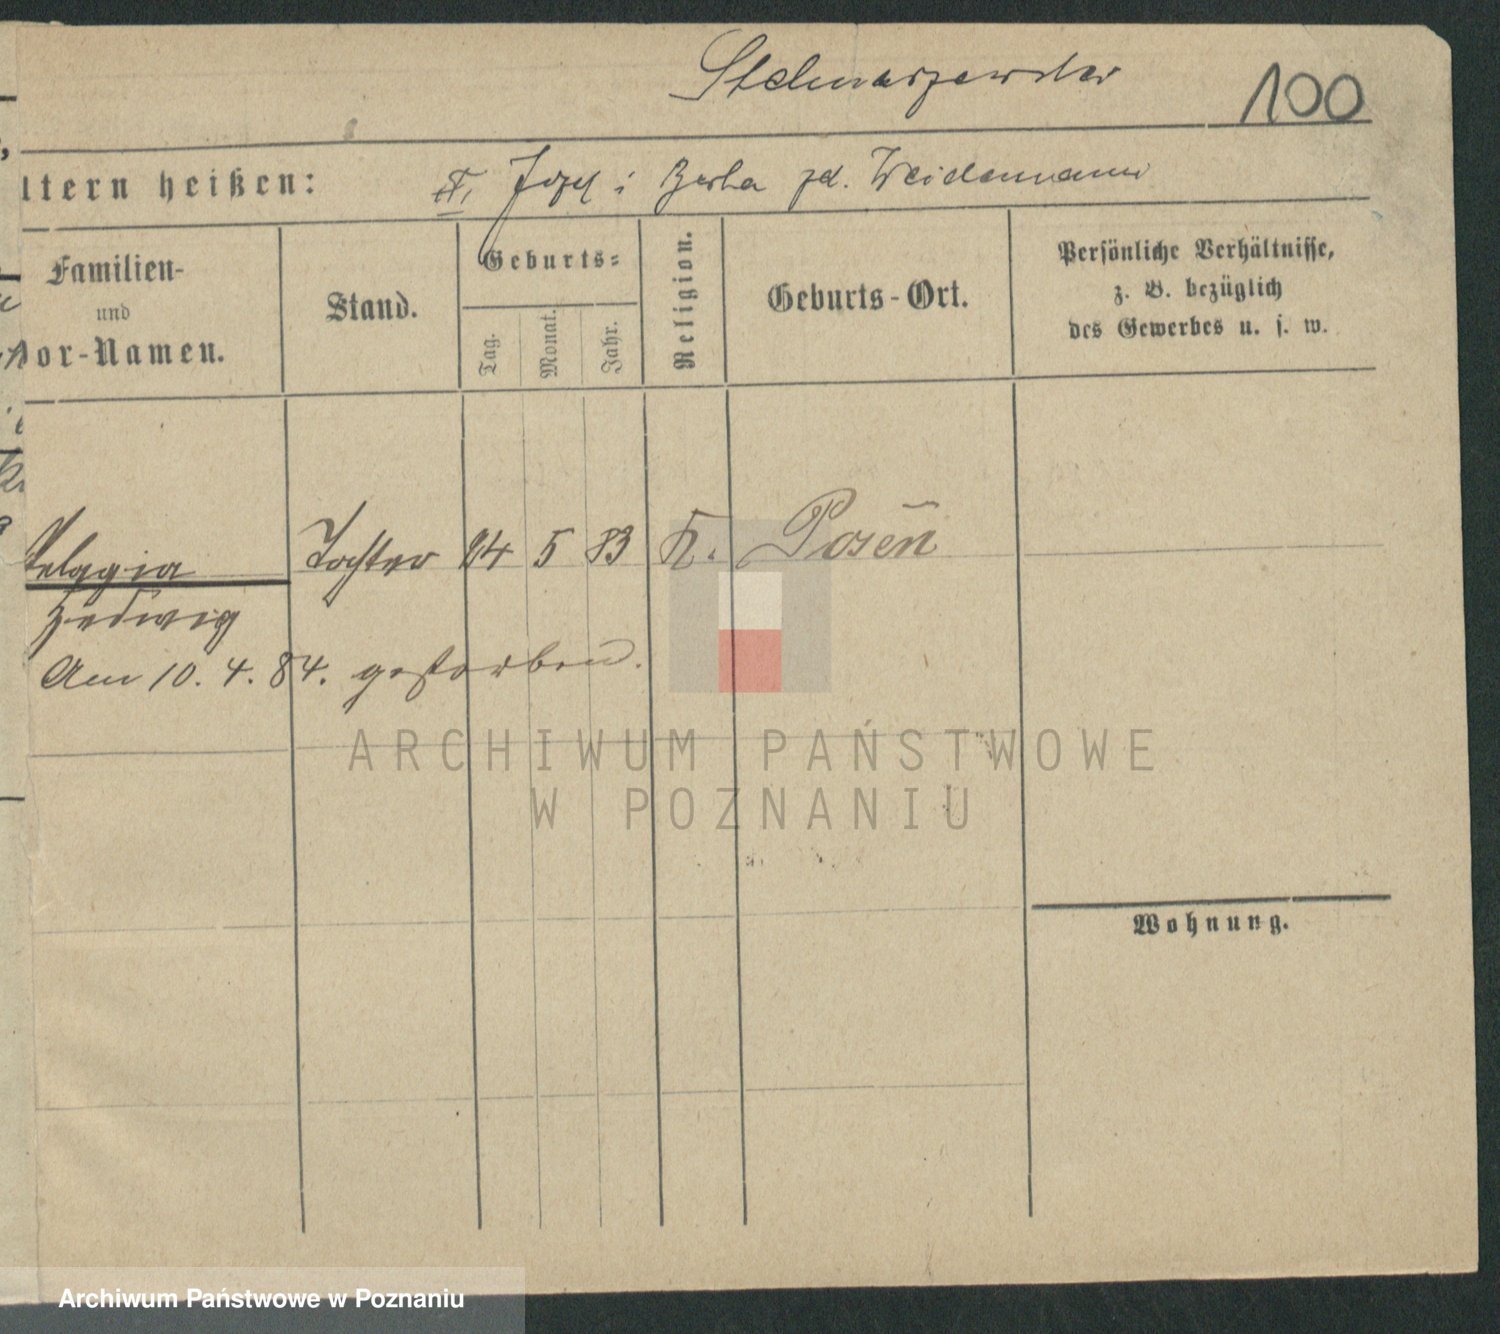 Stelmaszewska
100
ltern heißen:
Jozef i Berta zd. Weidemann
Familien-
und
Vor-Namen.
Stand.
Geburts-
Tag.
Monat.
Jahr.
Religion.
Geburts-Ort.
Persönliche Verhältnisse,
z. B. bezüglich
des Gewerbes u. s. w.
Pelagia Tochter 14 5 83 K. Posen
Hedwig
Am 10. 4. 84. gestorben.
Wohnung.
ARCHIWUM PAŃSTWOWE
W POZNANIU
Archiwum Państwowe w Poznaniu